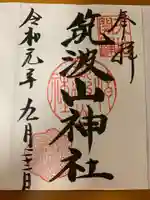 奉拝
筑波山神社
令和元年九月二十一日